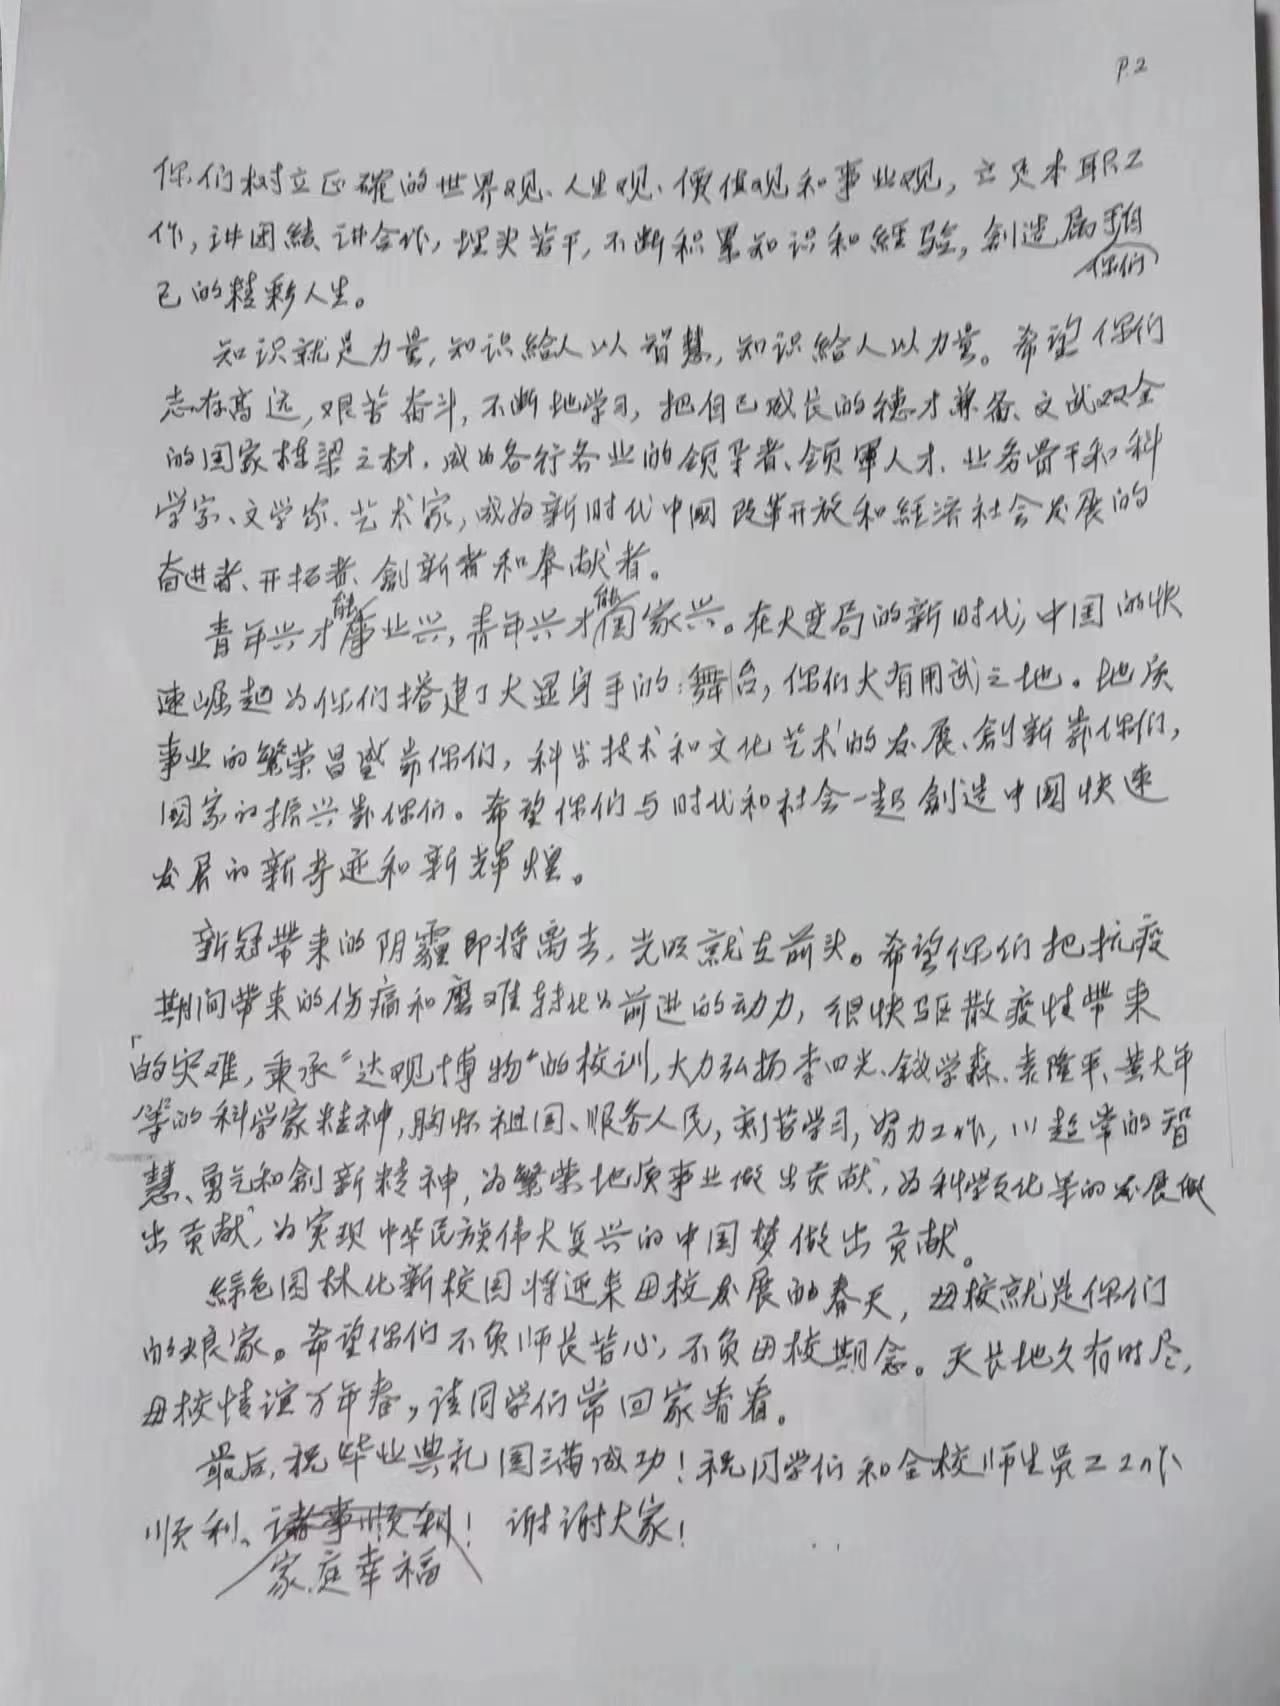 P.2
你们树立正確的世界观、人生观、價值观和事业观，立足本职工
作，讲团結、讲合作，埋头苦干，不断积累知识和經验，創造属于你们自
己的精彩人生。
知识就是力量，知识給人以智慧，知识給人以力量。希望你们
志存高远，艰苦奋斗，不断地学习，把自己成长的德才兼备、文武双全
的国家栋梁之材，成为各行各业的领导者、领軍人才、业务骨干和科
学家、文学家、艺术家，成为新时代中國改革开放和經济社会发展的
奋进者、开拓者、創新者和奉献者。
青年兴才能事业兴，青年兴才能国家兴。在大变局的新时代，中国的快
速崛起为你们搭建了大显身手的舞台，你们大有用武之地。地质
事业的繁荣昌盛靠你们，科学技术和文化艺术的发展、創新靠你们，
国家的振兴靠你们。希望你们与时代和社会一起創造中國快速
发展的新奇迹和新輝煌。
新冠带来的阴霾即将离去，光明就在前头。希望你们把抗疫
期间带来的伤痛和磨难转化为前进的动力，很快驱散疫情带来
的灾难，秉承“达观博物”的校训，大力弘扬李四光、钱学森、袁隆平、黄大年
等的科学家精神，胸怀祖国、服务人民，刻苦学习，努力工作，以超常的智
慧、勇气和創新精神，为繁荣地质事业做出贡献，为科学文化等的发展做
出贡献，为实现中华民族伟大复兴的中国梦做出贡献。
綠色园林化新校园将迎来母校发展的春天，母校就是你们
的娘家。希望你们不负师长苦心，不负母校期念。天长地久有时尽，
母校情谊万年春，请同学们常回家看看。
最后，祝毕业典礼圆满成功！祝同学们和全校师生员工工作
顺利、家庭幸福！谢谢大家！